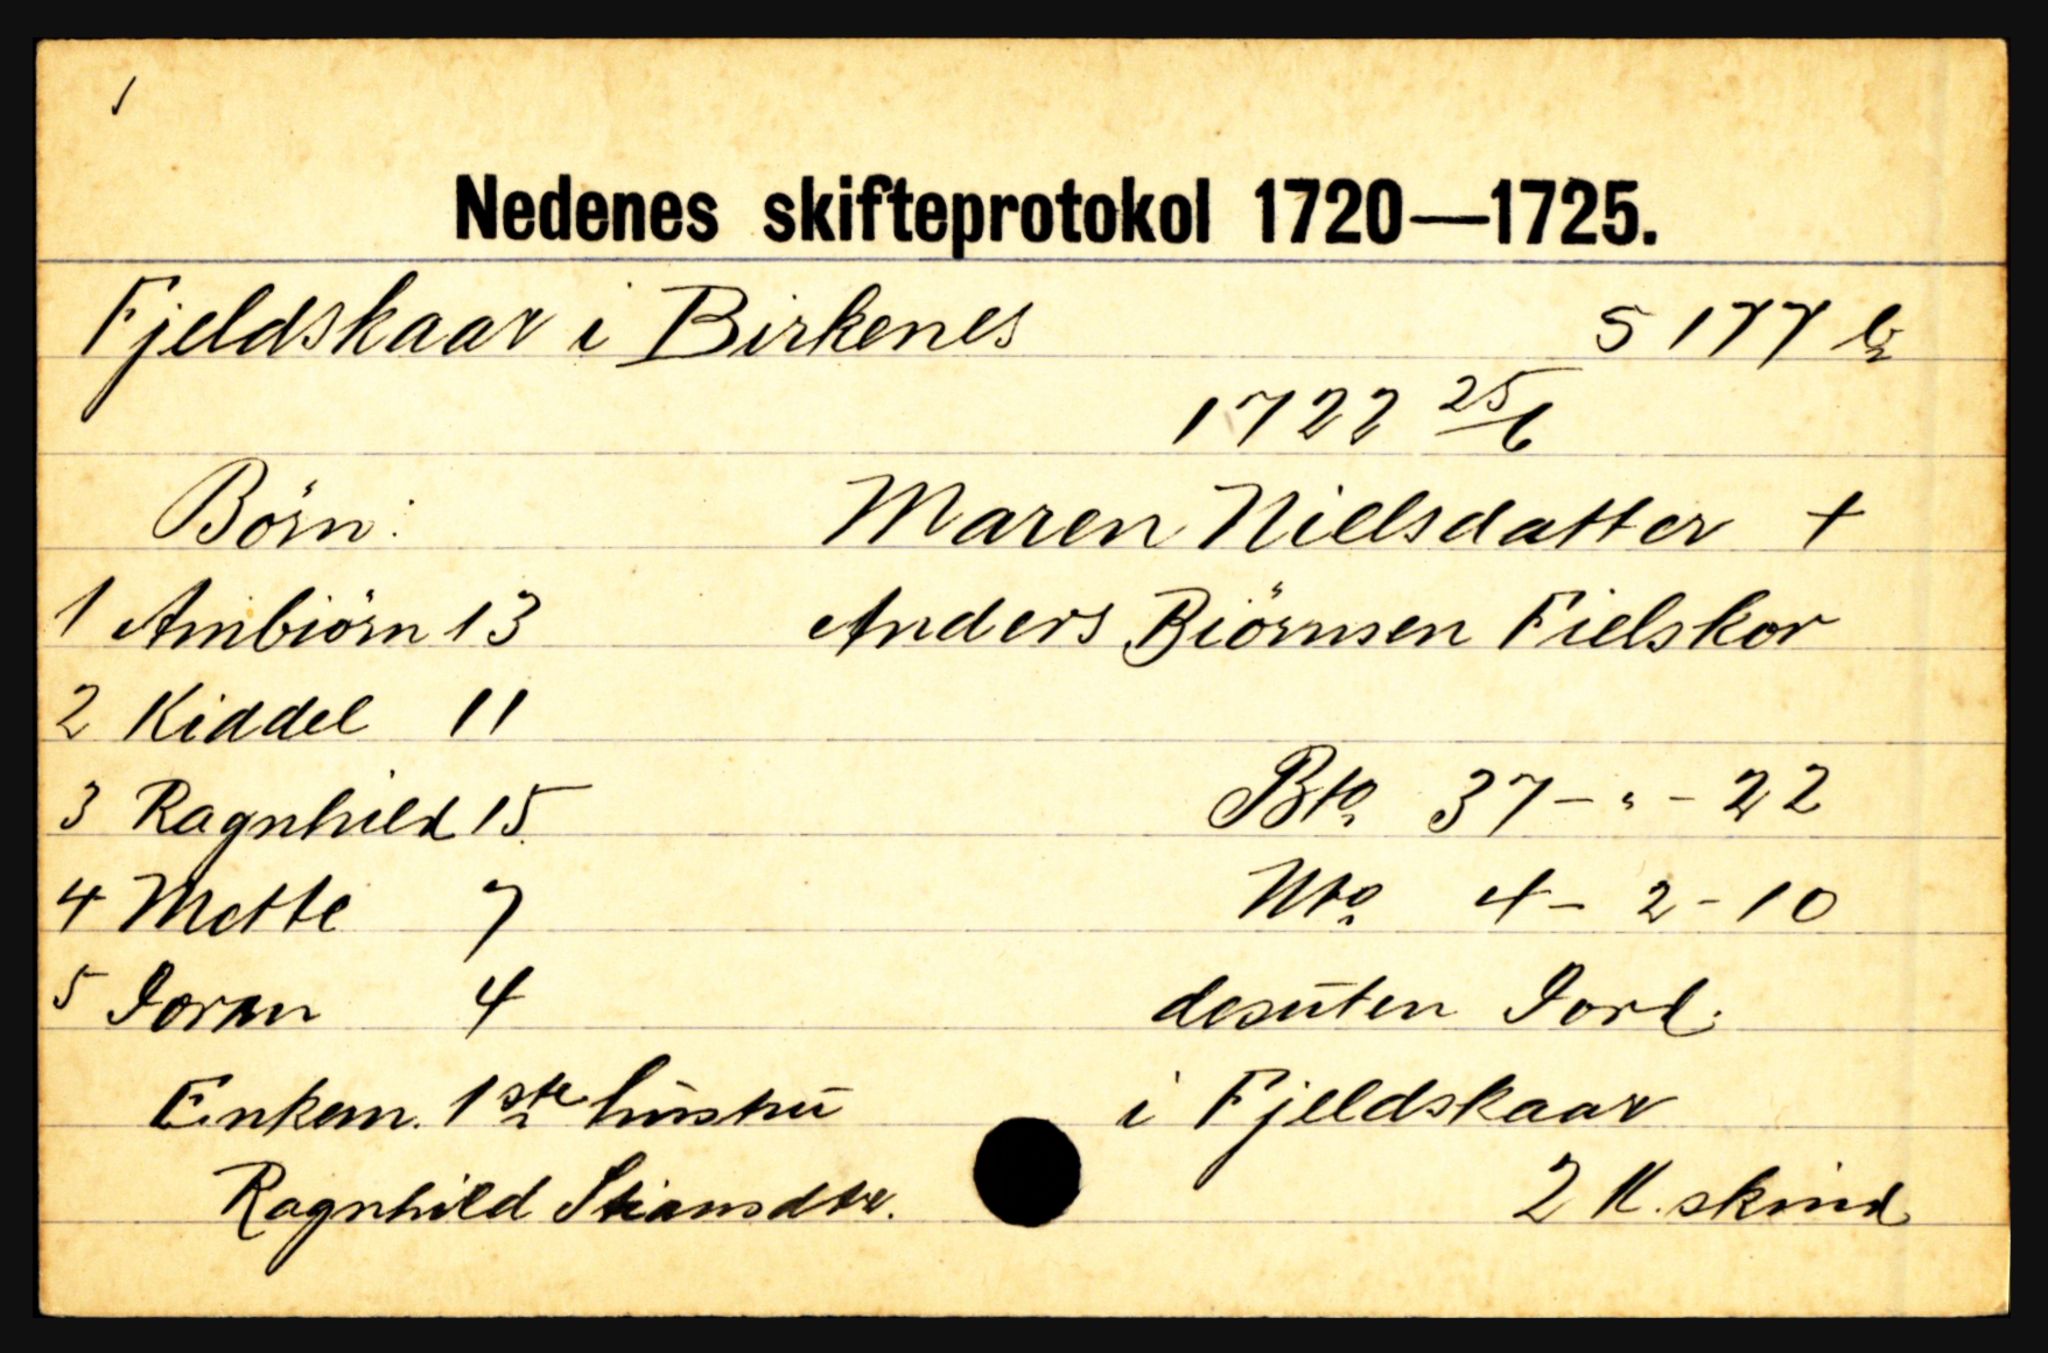 1
Nedenes skifteprotokol 1720—1725.
Fjeldskaar i Birkenes 5 177 b
1722 25/6
Börn: Maren Nielsdatter +
1 Ambiörn 13 Anders Biörnsen Fielskor
2 Kiddel 11
3 Ragnhild 15 Bto 37 - " - 22
4 Mette 7 Nto 4 - 2 - 10
5 Joran 4 desuten Jord.
Enkem. 1ste hustru i Fjeldskaar
Ragnhild Stiansdtr. 2 K. skind